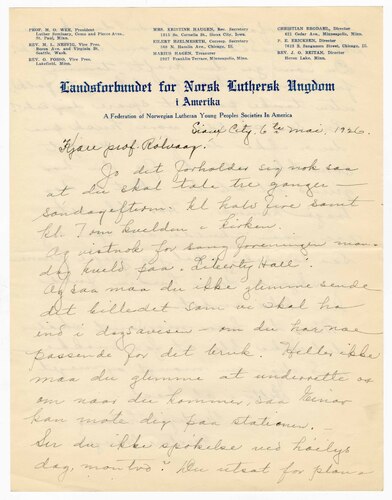 PROF. M. O. WEE, President
Corresp. Secretary, Como and Pierce Aves.,
St. Paul, Minn.
REV. M. L. NESVIG, Vice Pres.
Boren Ave. and Virginia St.
Seattle, Wash.
REV. O. FOSSO, Vice Pres.
Lakefield, Minn.
MRS. KRISTINE HAUGEN, Rec. Secretary
1815 So. Cornelia St., Sioux City, Iowa.
EILERT HJELMSETH, Corresp. Secretary
N. Mozart Ave., Chicago, Ill.
MARIUS HAGEN, Treasurer
2927 Franklin Terrace, Minneapolis, Minn.
CHRISTIAN BRODAHL, Director
621 Cedar Ave., Minneapolis, Minn.
P. E. ERICKSEN, Director
7615 S. Sangamon Street, Chicago, Ill.
REV. J. O. REITAN, Director
Heron Lake, Minn.
Landsforbundet for Norsk Luthersk Ungdom
i Amerika
A Federation of Norwegian Lutheran Young Peoples Societies In America
Sioux City, 6te mai, 1926.
Kjære prof. Rölvaag!
Jo det forholder sig nok saa
at du skal tale tre ganger –
söndageftermd. kl halv fire samt
kl. 7 om kvelden i kirken.
Og vistnok for sangforeningen man-
dag kveld paa "Liberty Hall".
Og saa maa du ikke glemme sende
det billedet som vi skal ha
ind i dagsavisen – om du har noe
passende for det bruk. Heller ikke
maa du glemme at underrette os
om naar du kommer, saa Einar
kan möte dig paa stationen. –
Ser du ikke spökelse ved höilys
dag, montro? Du utsat for plan-a